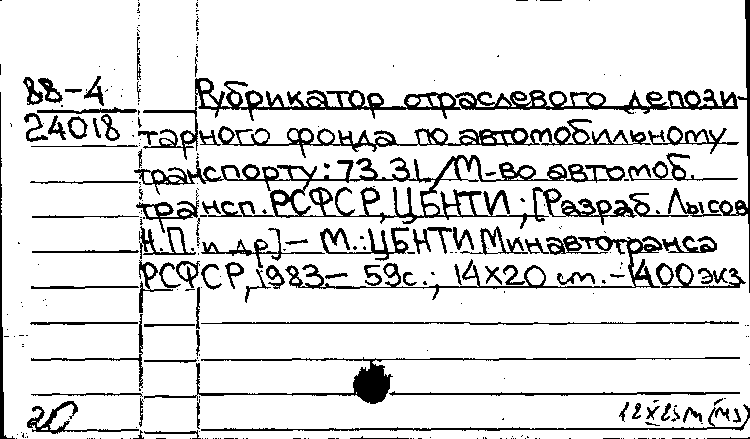 88-4
24018
Рубрикатор отраслевого депози-
тарного фонда по автомобильному
транспорту: 73.31 / М-во автомоб.
трансп. РСФСР, ЦБНТИ; [Разраб. Лысов
Н.П. и др.] – М.: ЦБНТИ Минавтотранса
РСФСР, 1983 – 59с.; 14х20 см. – 1400 экз
20